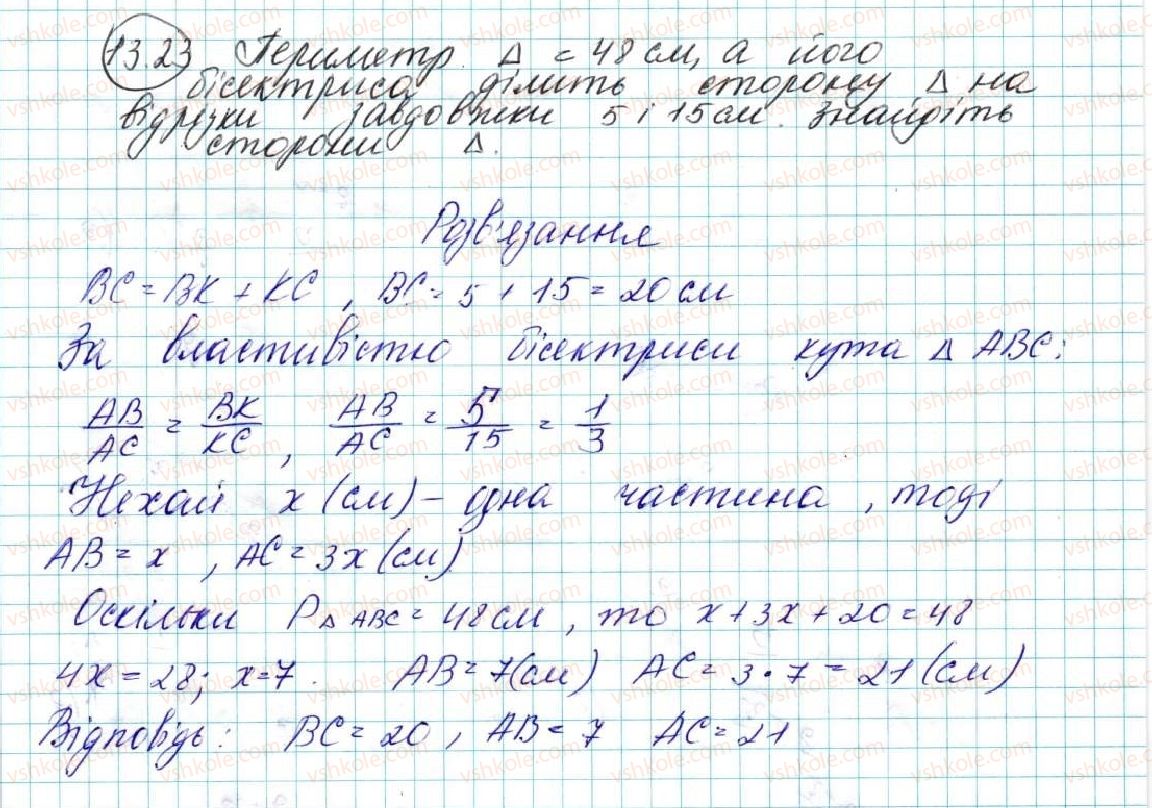 13.23 Периметр Δ = 48 см, а його
бісектриса ділить сторону Δ на
відрізки завдовжки 5 і 15 см. Знайдіть
сторони Δ.
Розв'язання
BC = BK + KC , BC = 5 + 15 = 20 см
За властивістю бісектриси кута Δ ABC:
AB/AC = BK/KC , AB/AC = 5/15 = 1/3
Нехай x (см) – одна частина , тоді
AB = x , AC = 3x (см)
Оскільки P Δ ABC = 48 см , то x + 3x + 20 = 48
4x = 28; x = 7 . AB = 7 (см) AC = 3 · 7 = 21 (см)
Відповідь: BC = 20 , AB = 7 AC = 21